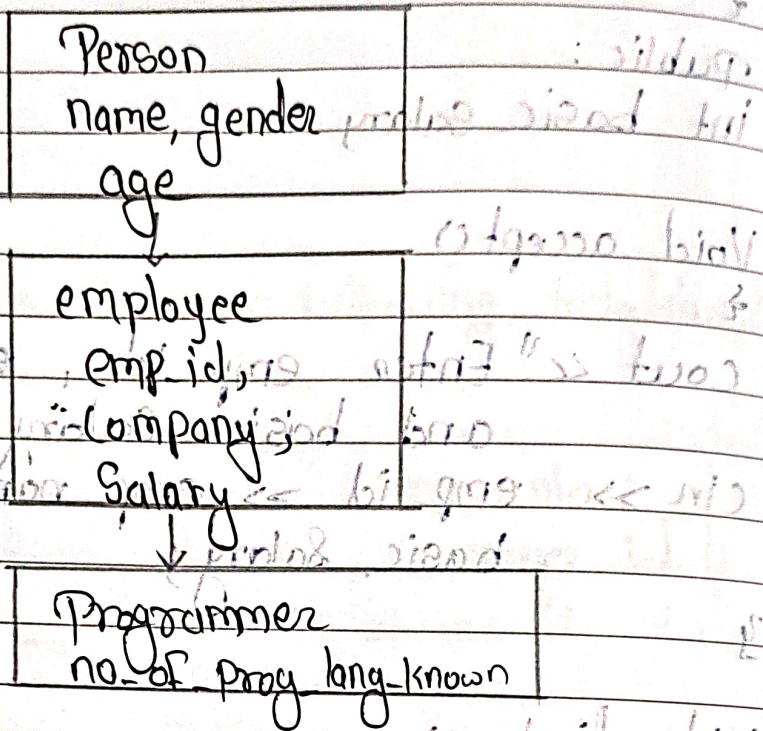 Person
name, gender
age
employee
emp_id,
Company,
Salary
Programmer
no_of_prog_lang_known